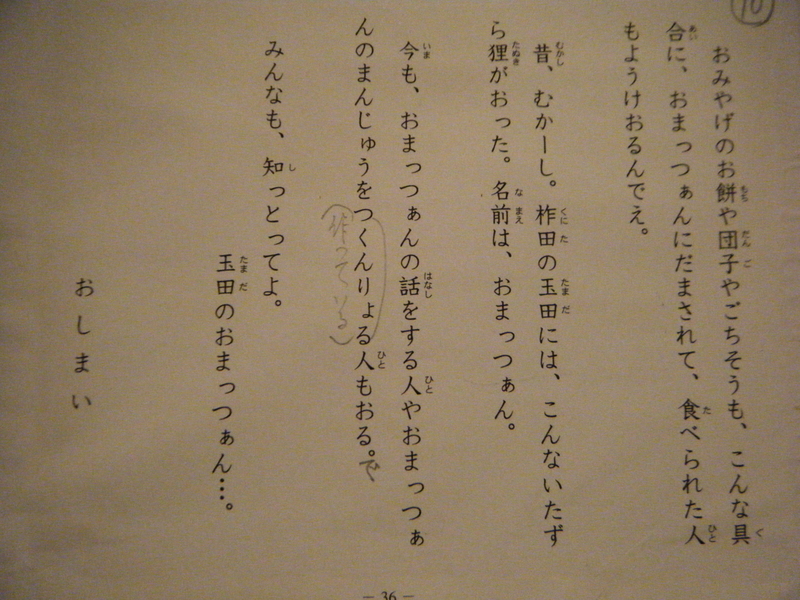 ⑩
おみやげのお餅や団子やごちそうも、こんな具
合に、おまっつぁんにだまされて、食べられた人
もようけおるんでえ。
昔、むかーし。柞田の玉田には、こんないたず
ら狸がおった。名前は、おまっつぁん。
今も、おまっつぁんの話をする人やおまっつぁ
んのまんじゅうをつくんりょる人もおる。で
(作っている)
みんなも、知っとってよ。
玉田のおまっつぁん…。
おしまい
― 36 ―